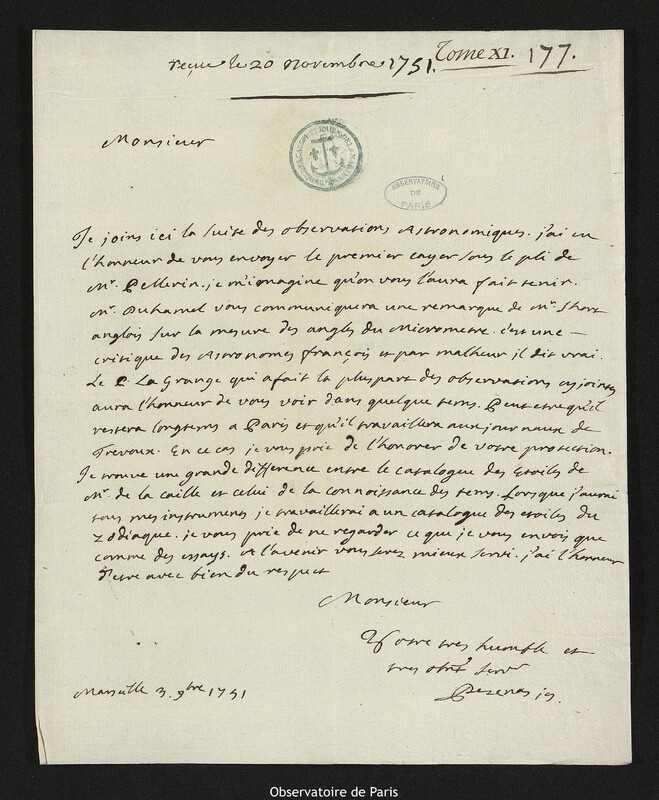 reçue le 20 novembre 1751. Tome XI. 177.
Monsieur
OBSERVATOIRE
DE
PARIS
Je joins ici la suite des observations Astronomiques. j'ai eu
l'honneur de vous envoyer le premier cayer sous le pli de
Mr. Pellerin. je m'imagine qu'on vous l'aura fait tenir.
Mr. Duhamel vous communiquera une remarque de Mr. Short
anglois sur la mesure des angles du Micrometre. c'est une —
critique des Astronomes françois et par malheur il dit vrai.
Le P. La Grange qui a fait la pluspart des observations cy jointes
aura l'honneur de vous voir dans quelque tems. Peut etre qu'il
restera longtems a Paris et qu'il travaillera aux journaux de
Trevoux. En ce cas je vous prie de l'honorer de votre protection.
Je trouve une grande difference entre le catalogue des Etoiles de
Mr. de la caille et celui de la connoissance des tems. Lorsque j'aurai
tous mes instrumens je travaillerai a un catalogue des etoiles du
zodiaque. je vous prie de ne regarder ce que je vous envois que
comme des essays. A l'avenir vous serez mieux servi. j'ai l'honneur
d'etre avec bien du respect
Monsieur
Votre tres humble et
tres obt. servr
Pezenas js.
Marseille 3. 9bre 1751
Observatoire de Paris